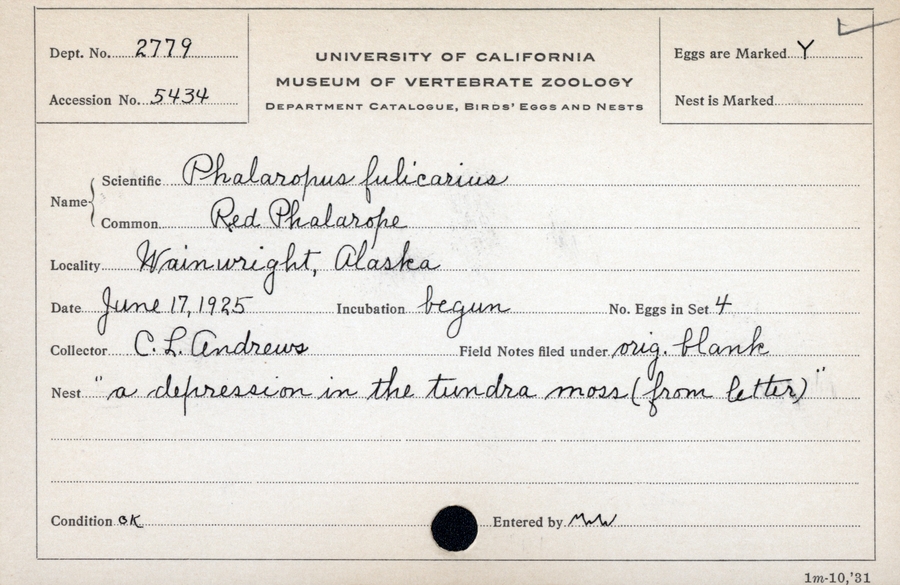 Dept. No. 2779
Accession No. 5434
UNIVERSITY OF CALIFORNIA
MUSEUM OF VERTEBRATE ZOOLOGY
DEPARTMENT CATALOGUE, BIRDS' EGGS AND NESTS
Eggs are Marked Y
Nest is Marked
Name
Scientific Phalaropus fulicarius
Common Red Phalarope
Locality Wainwright, Alaska
Date June 17, 1925 Incubation begun No. Eggs in Set 4
Collector C. L. Andrews Field Notes filed under orig. blank
Nest "a depression in the tundra moss (from letter)"
Condition OK Entered by
1m-10,'31